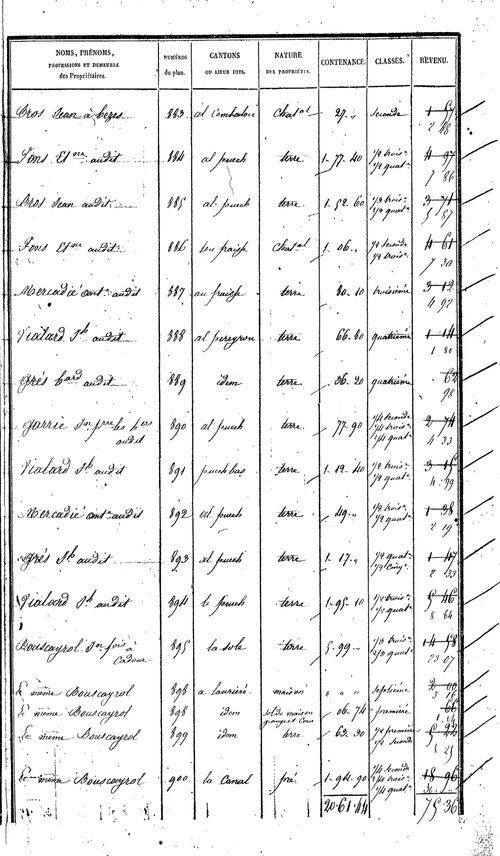 NOMS, PRÉNOMS, PROFESSIONS ET DEMEURES des Propriétaires. NUMÉROS du plan. CANTONS OU LIEUX DITS. NATURE DES PROPRIÉTÉS. CONTENANCE. CLASSES. REVENU.
Bros Jean à 883 al 27 " seconde
2 48
Pons Et.ne audit 884 al puech terre 1-77-40 1/2 trois. 1/2 quat. 4 97
7 86
Bros Jean audit 885 al puech terre 1-52-60 1/3 trois. 2/3 quat. 3 71
5 87
Pons Et.ne audit 886 lou fraisse 1-06 " 1/2 seconde 1/2 trois. 4 61
7 30
Mercadié ant. audit 887 au fraisse terre 80-10 troisième 3 12
4 92
Vialard J.h audit 888 al peyeyron terre 66-80 quatrième 1 14
1 80
Grés audit 889 idem terre 36-20 quatrième 62
98
Garrie J.n p.rre les h.ers audit 890 al puech terre 77-90 1/4 seconde 1/4 trois. 1/4 quat. 2 74
4 33
Vialard J.h audit 891 puech bas terre 1-12-40 1/2 trois. 1/2 quat. 3 15
4 99
Mercadié ant. audit 892 al puech terre 49 " 1/2 trois. 1/2 quat. 1 38
2 19
Grés J.h audit 893 al puech terre 1-17 " 1/2 quat. 1/2 cinq. 1 47
2 33
Vialard J.h audit 894 le puech terre 1-95-10 1/2 trois. 1/2 quat. 5 46
8 64
Bouscayrol J.n fois à Cadour 895 la sole terre 5-99 " 1/3 trois. 2/3 quat. 14 58
23 07
Le même Bouscayrol 898 a lauriere maison " " " septième 2 00
3 16
Le même Bouscayrol 898 idem sol de maison granges Cour 06-74 première 66
1 04
Le même Bouscayrol 899 idem terre 63-30 1/2 première 1/2 seconde
Le même Bouscayrol 900 la Canal pré 1-94-90 1/4 seconde 2/4 trois. 1/4 quat. 18 96
20-61-44 75 36